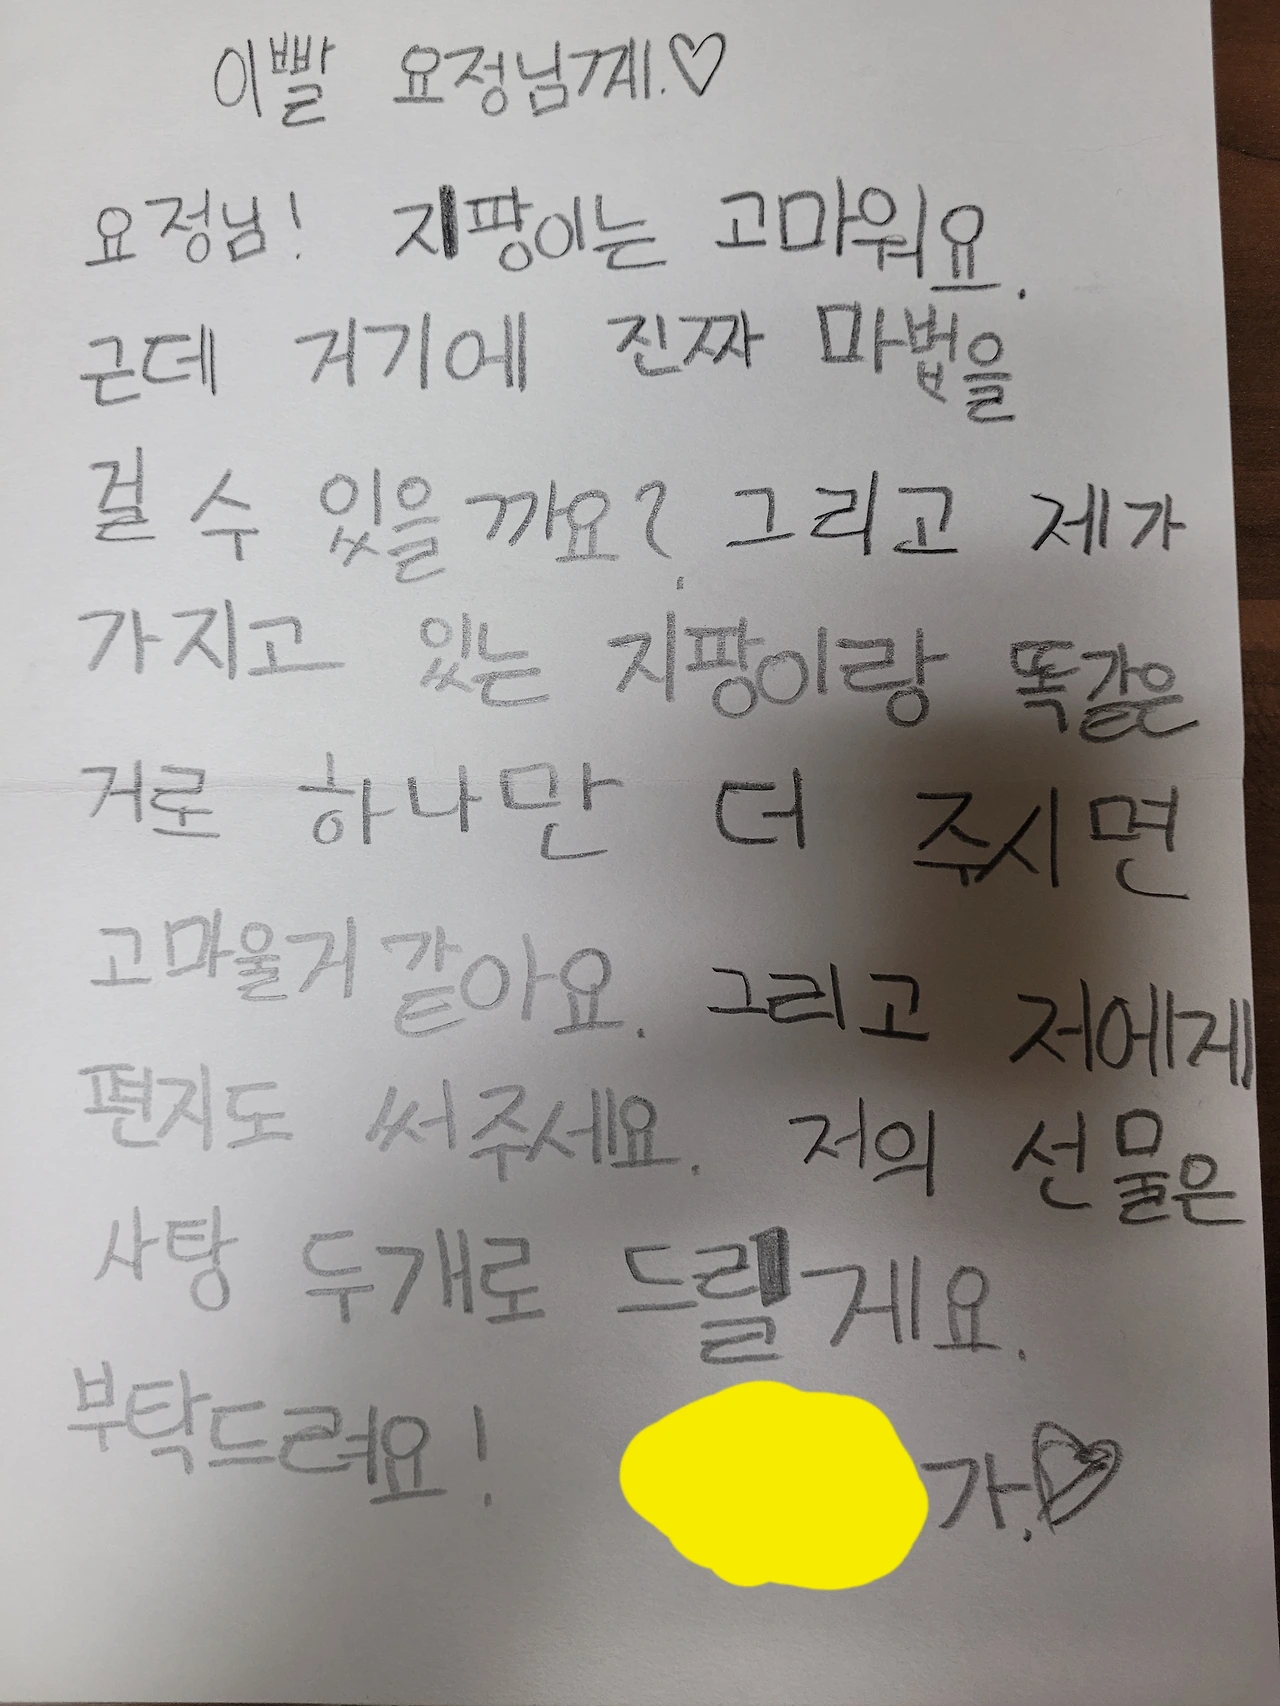 이빨 요정님께.♡
요정님! 지팡이는 고마워요.
근데 거기에 진짜 마법을
걸 수 있을까요? 그리고 제가
가지고 있는 지팡이랑 똑같은
거로 하나만 더 주시면
고마울거 같아요. 그리고 저에게
편지도 써주세요. 저의 선물은
사탕 두개로 드릴게요.
부탁드려요! 가.♡